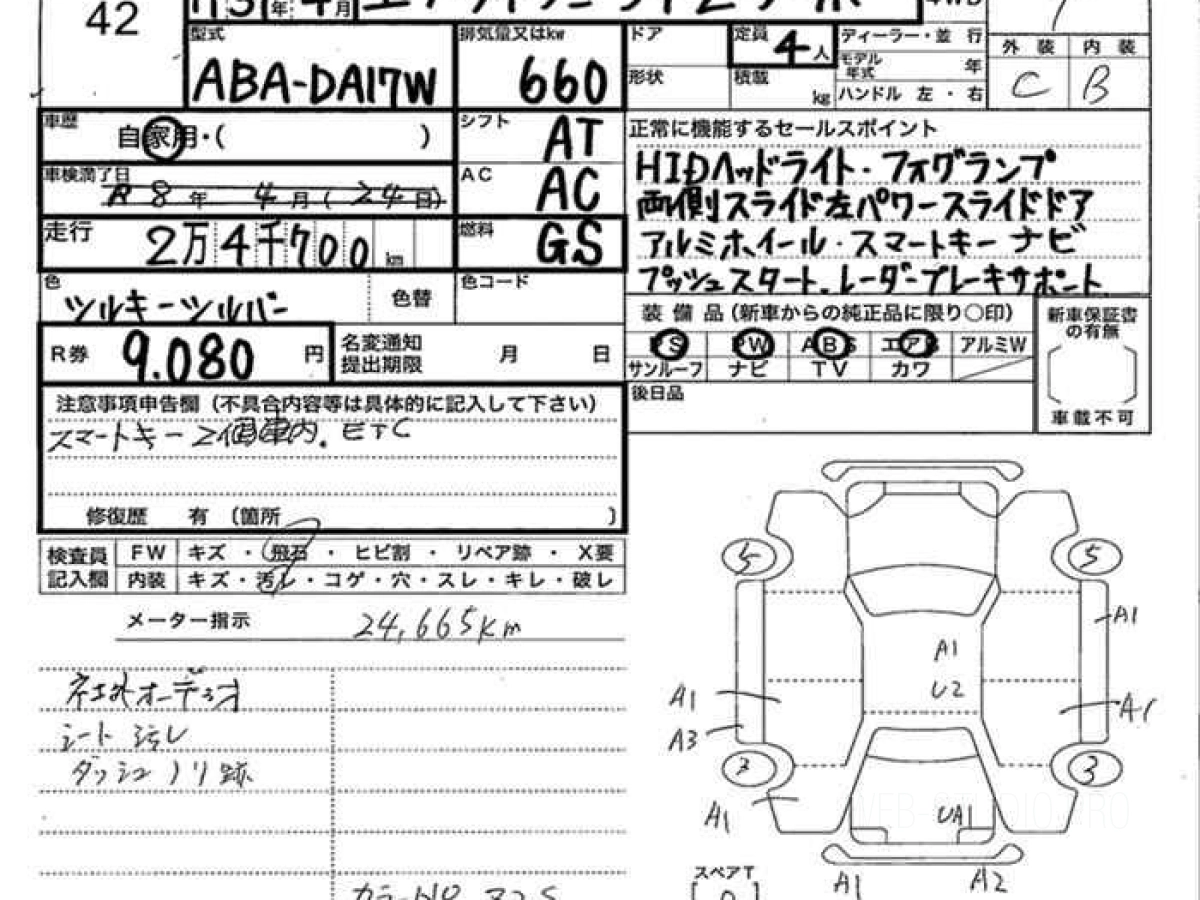 42
H 31 年 4 月
型式
ABA-DA17W
排気量又はkw
660
ドア
定員
4 人
ディーラー・並 行
モデル年式 年
形状
積載 kg
ハンドル 左・右
外 装 内 装
C B
車歴
自家用・( )
シフト
AT
車検満了日
R 8 年 4 月 ( 24 日)
AC
AC
走行
2万4千700 km
燃料
GS
色
ツルキーツルバー
色替
色コード
R券 9.080 円
名変通知
提出期限 月 日
正常に機能するセールスポイント
HIDヘッドライト・フォグランプ
両側スライド左パワースライドドア
アルミホイール・スマートキー ナビ
プッシュスタート.レーダーブレーキサポート
装 備 品 (新車からの純正品に限り○印)
PS PW ABS エアB アルミW
サンルーフ ナビ TV カワ
後日品
新車保証書
の有無
車載不可
注意事項申告欄 (不具合内容等は具体的に記入して下さい)
スマートキー 2個車内. ETC
修復歴 有 (箇所 )
検査員
記入欄
FW キズ ・ 飛石 ・ ヒビ割 ・ リペア跡 ・ X要
内装 キズ・汚レ・コゲ・穴・スレ・キレ・破レ
メーター指示 24,665km
社外オーデオ
シート 汚レ
ダッシュ ノリ跡
5 5
A1
A1
U2
A1
A1
A3
3 3
A1
UA1
スペアT
A1
A2